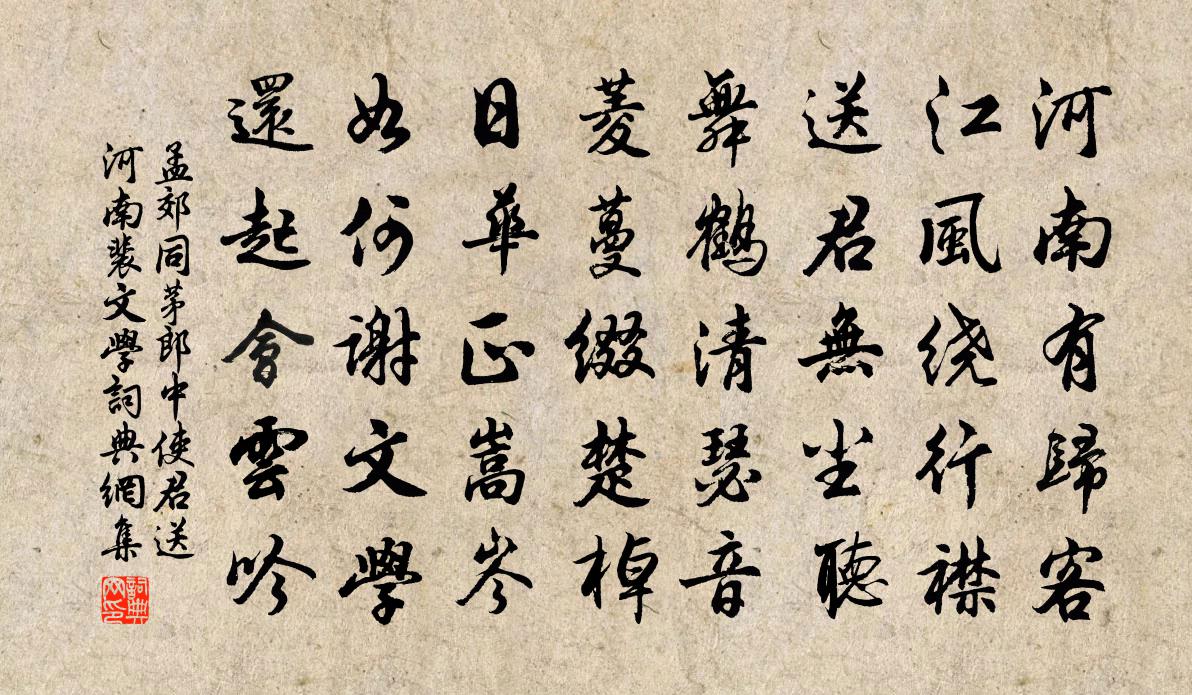 河南有歸客
江風绕行襟
送君無尘聽
舞鶴清瑟音
菱蔓綴楚棹
日華正嵩岑
如何謝文學
還起會雲吟
孟郊同茅郎中使君送
河南裴文學詞典網集
詞典
网印